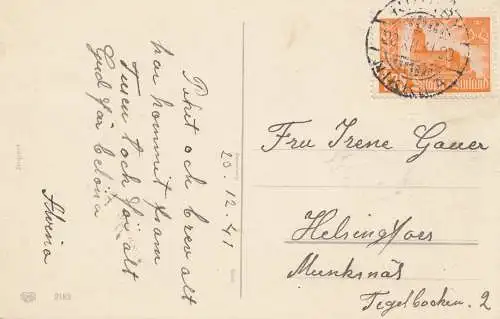 Paket och brev allt
har kommit fram
Tusen tack för allt
Gud för belöna
Alvina
20.12.41
Fru Irene Gauer
Helsingfors
Munksnäs
Tegelbacken. 2
Suomi Finland
2183